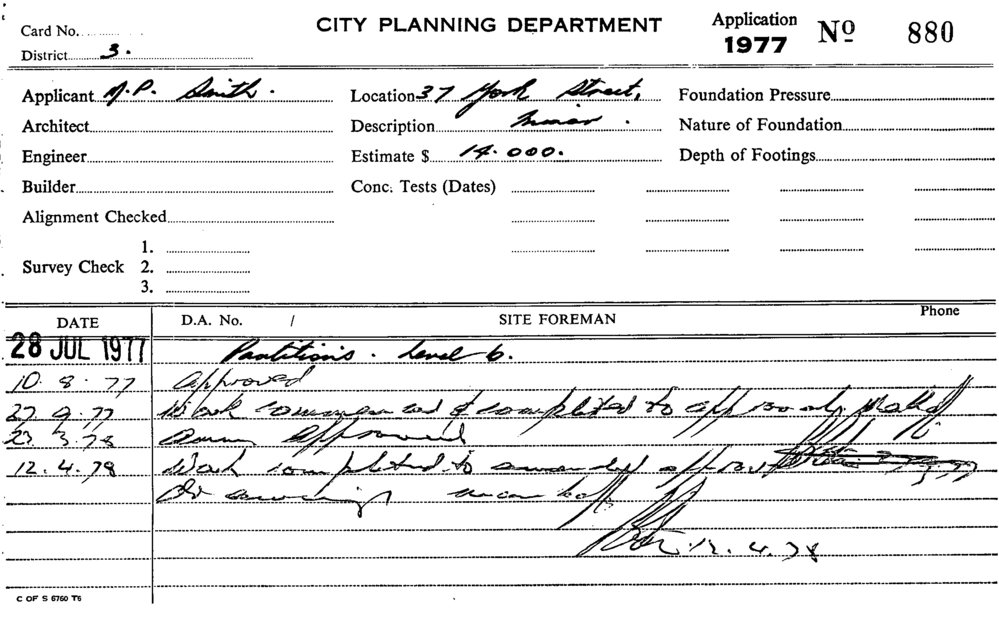 Card No.
CITY PLANNING DEPARTMENT
Application 1977 Nº 880
District 3.
Applicant M.P. Smith. Location 37 York Street, Foundation Pressure
Architect Description Minor. Nature of Foundation
Engineer Estimate $ 14.000. Depth of Footings
Builder Conc. Tests (Dates)
Alignment Checked
1.
Survey Check 2.
3.
DATE D.A. No. / SITE FOREMAN Phone
28 JUL 1977 Partitions. Level 6.
10.8.77 Approved
9.77 Work commenced & completed to
23 3.78 Approved
12.4.78 Work completed to
Drawings
12.4.78
C OF S 6760 T6